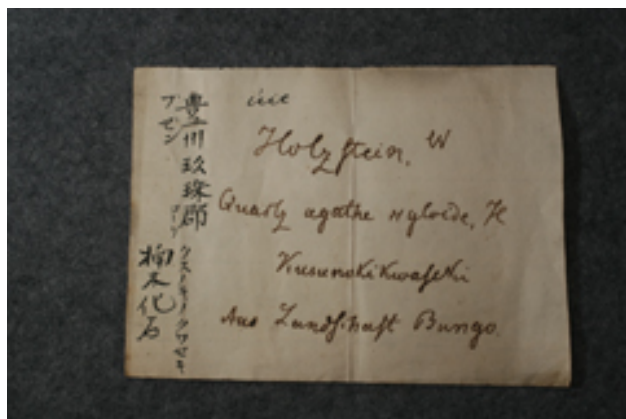 豊州玖珠郡
ブゼン
クスノキノクワセキ
楠木化石
Holzstein, W
Quarz agathe xyloide, H
Kusunokikwaseki
Aus Landschaft Bungo.